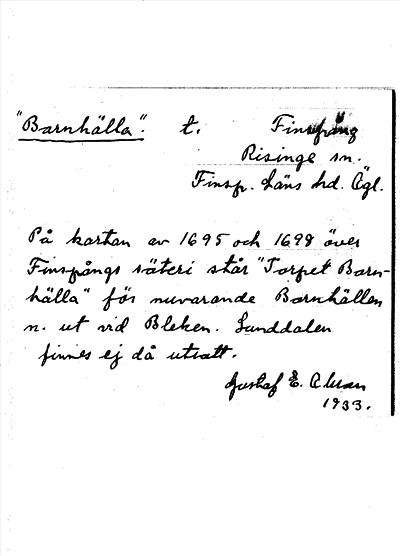 "Barnhälla". t. Finspång
Risinge sn.
Finsp. läns hd. Ögl.
På kartan av 1695 och 1698 över
Finspångs säteri står "Torpet Barn-
hälla" för nuvarande Barnhällen
n. ut vid Bleken. Lunddalen
finnes ej då utsatt.
Gustaf E.
1933.